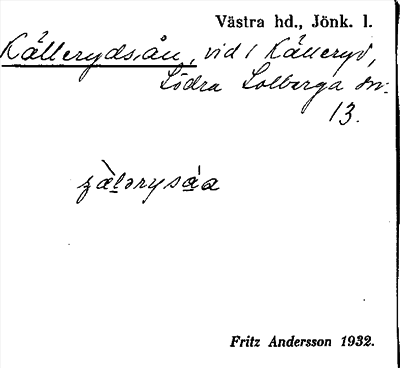 Västra hd., Jönk. l.
Källerydsån, vid 1 Källeryd,
Södra Solberga sn:
13.
Fritz Andersson 1932.